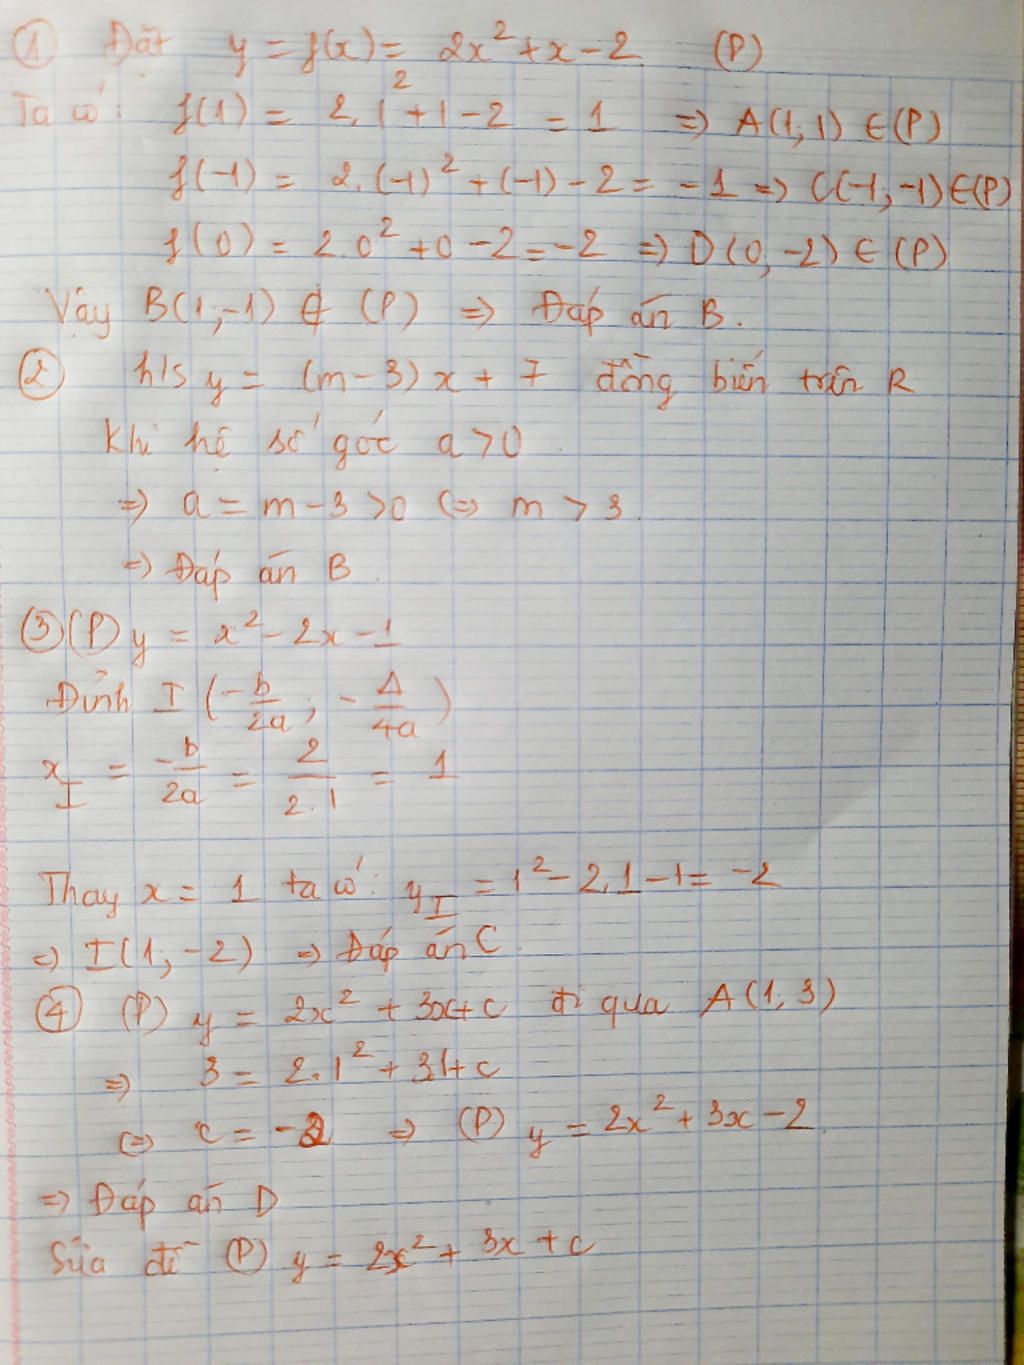 ① Đặt y = f(x) = 2x² + x - 2 (P)
Ta có: f(1) = 2.1² + 1 - 2 = 1 => A(1; 1) ∈ (P)
f(-1) = 2.(-1)² + (-1) - 2 = -1 => C(-1; -1) ∈ (P)
f(0) = 2.0² + 0 - 2 = -2 => D(0; -2) ∈ (P)
Vậy B(1; -1) ∉ (P) => Đáp án B.
② h/s y = (m - 3)x + 7 đồng biến trên R
Khi hệ số góc a > 0.
=> a = m - 3 > 0 <=> m > 3.
=> Đáp án B.
③ (P) y = x² - 2x - 1
Đỉnh I (-b/2a ; -Δ/4a)
x_I = -b/2a = 2/2.1 = 1
Thay x = 1 ta có: y_I = 1² - 2.1 - 1 = -2
=> I(1; -2) => Đáp án C.
④ (P) y = 2x² + 3x + c đi qua A(1; 3)
=> 3 = 2.1² + 3.1 + c
<=> c = -2 => (P) y = 2x² + 3x - 2.
=> Đáp án D
Sửa đề (P) y = 2x² + 3x + c